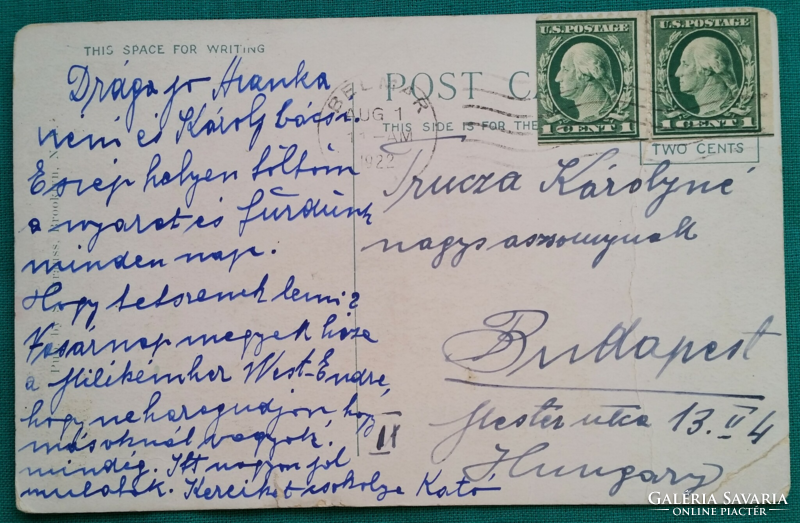 THIS SPACE FOR WRITING
Drága jó Aranka
néni és Károly bácsi.
E szép helyen töltöm
a nyarat és fürdünk
minden nap.
Hogy tetszenek lenni?
Vasárnap megyek haza
a Milikémhez West-Endre,
hogy ne haragudjon, hogy
másoknál vagyok.
mindig. Itt nagyon jól
mulatok. Kezeiket csókolja Kató
II
POST
THIS SIDE IS FOR THE
BELMAR
AUG 1
11-AM
1922
U.S. POSTAGE
1 CENT 1
U.S. POSTAGE
1 CENT 1
TWO CENTS
Trucza Károlyné
nagysasszonynak
Budapest
Mester utca 13. II 4
Hungary
GALÉRIA SAVARIA
ONLINE PIACTÉR